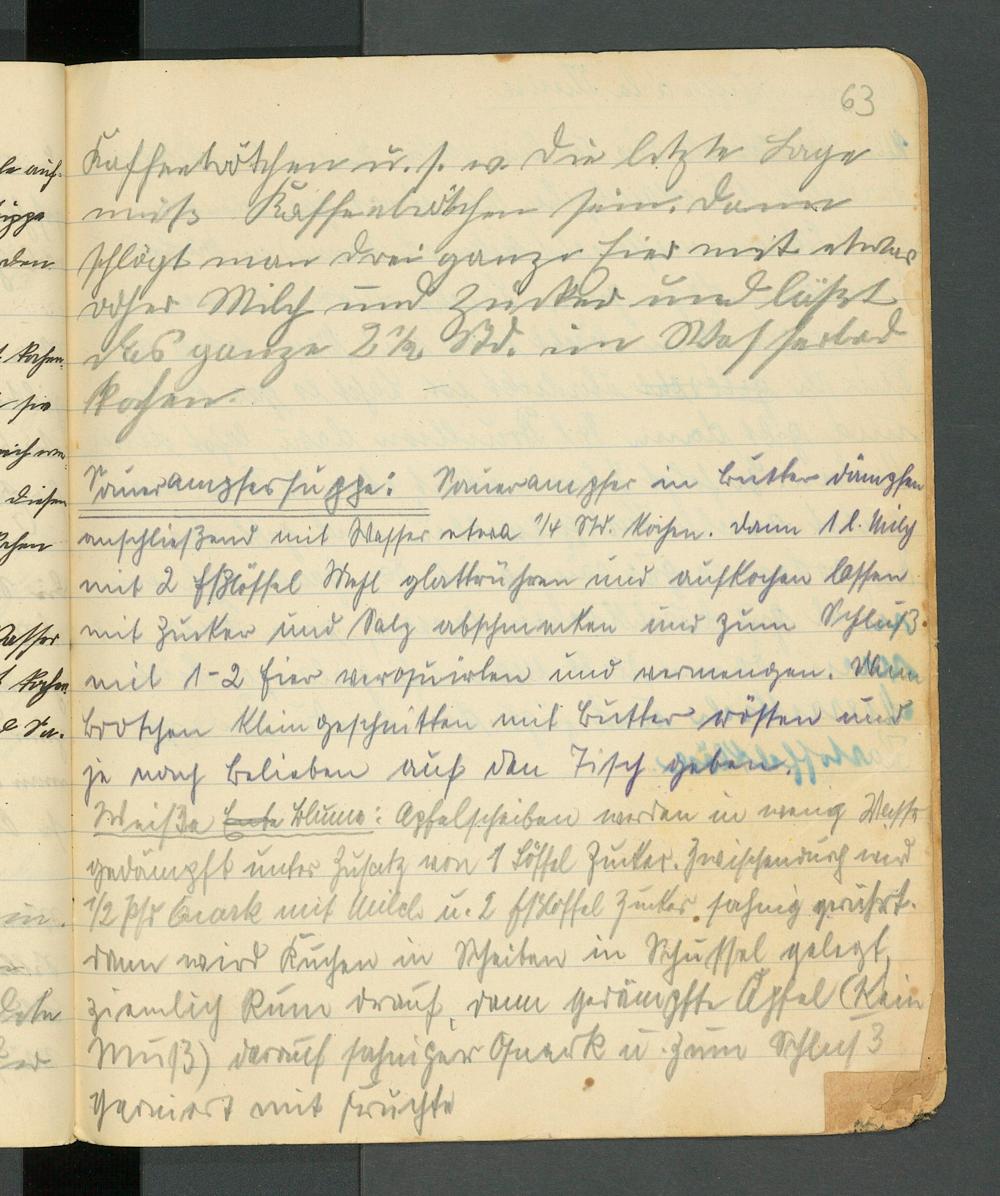 63
Kaffeebrötchen u. s. w. Die letzte Lage
muß Kaffeebrötchen sein. Dann
schlägt man drei ganze Eier mit etwas
roher Milch und Zucker und läßt
das ganze 2½ Std. im Wasserbad
kochen.
Sauerampfersuppe: Sauerampfer in Butter dämpfen
anschließend mit Wasser etwa 1/4 Std. kochen. Dann 1 l. Milch
mit 2 Eßlöffel Mehl glattrühren und aufkochen lassen
mit Zucker und Salz abschmecken und zum Schluß
mit 1-2 Eier verquirlen und vermengen.
Brötchen klein geschnitten mit Butter rösten und
je nach Belieben auf den Tisch geben.
Weiße Blume: Apfelscheiben werden in wenig Wasser
gedämpft unter Zusatz von 1 Löffel Zucker. Zwischendurch wird
1/2 Pfd Quark mit Milch u. 2 Eßlöffel Zucker sahnig gerührt.
dann wird Kuchen in Scheiben in Schüssel gelegt,
ziemlich Rum drauf, dann gedämpfte Äpfel (Kein
Muß) darauf sahniger Quark u. zum Schluß
garniert mit Früchte